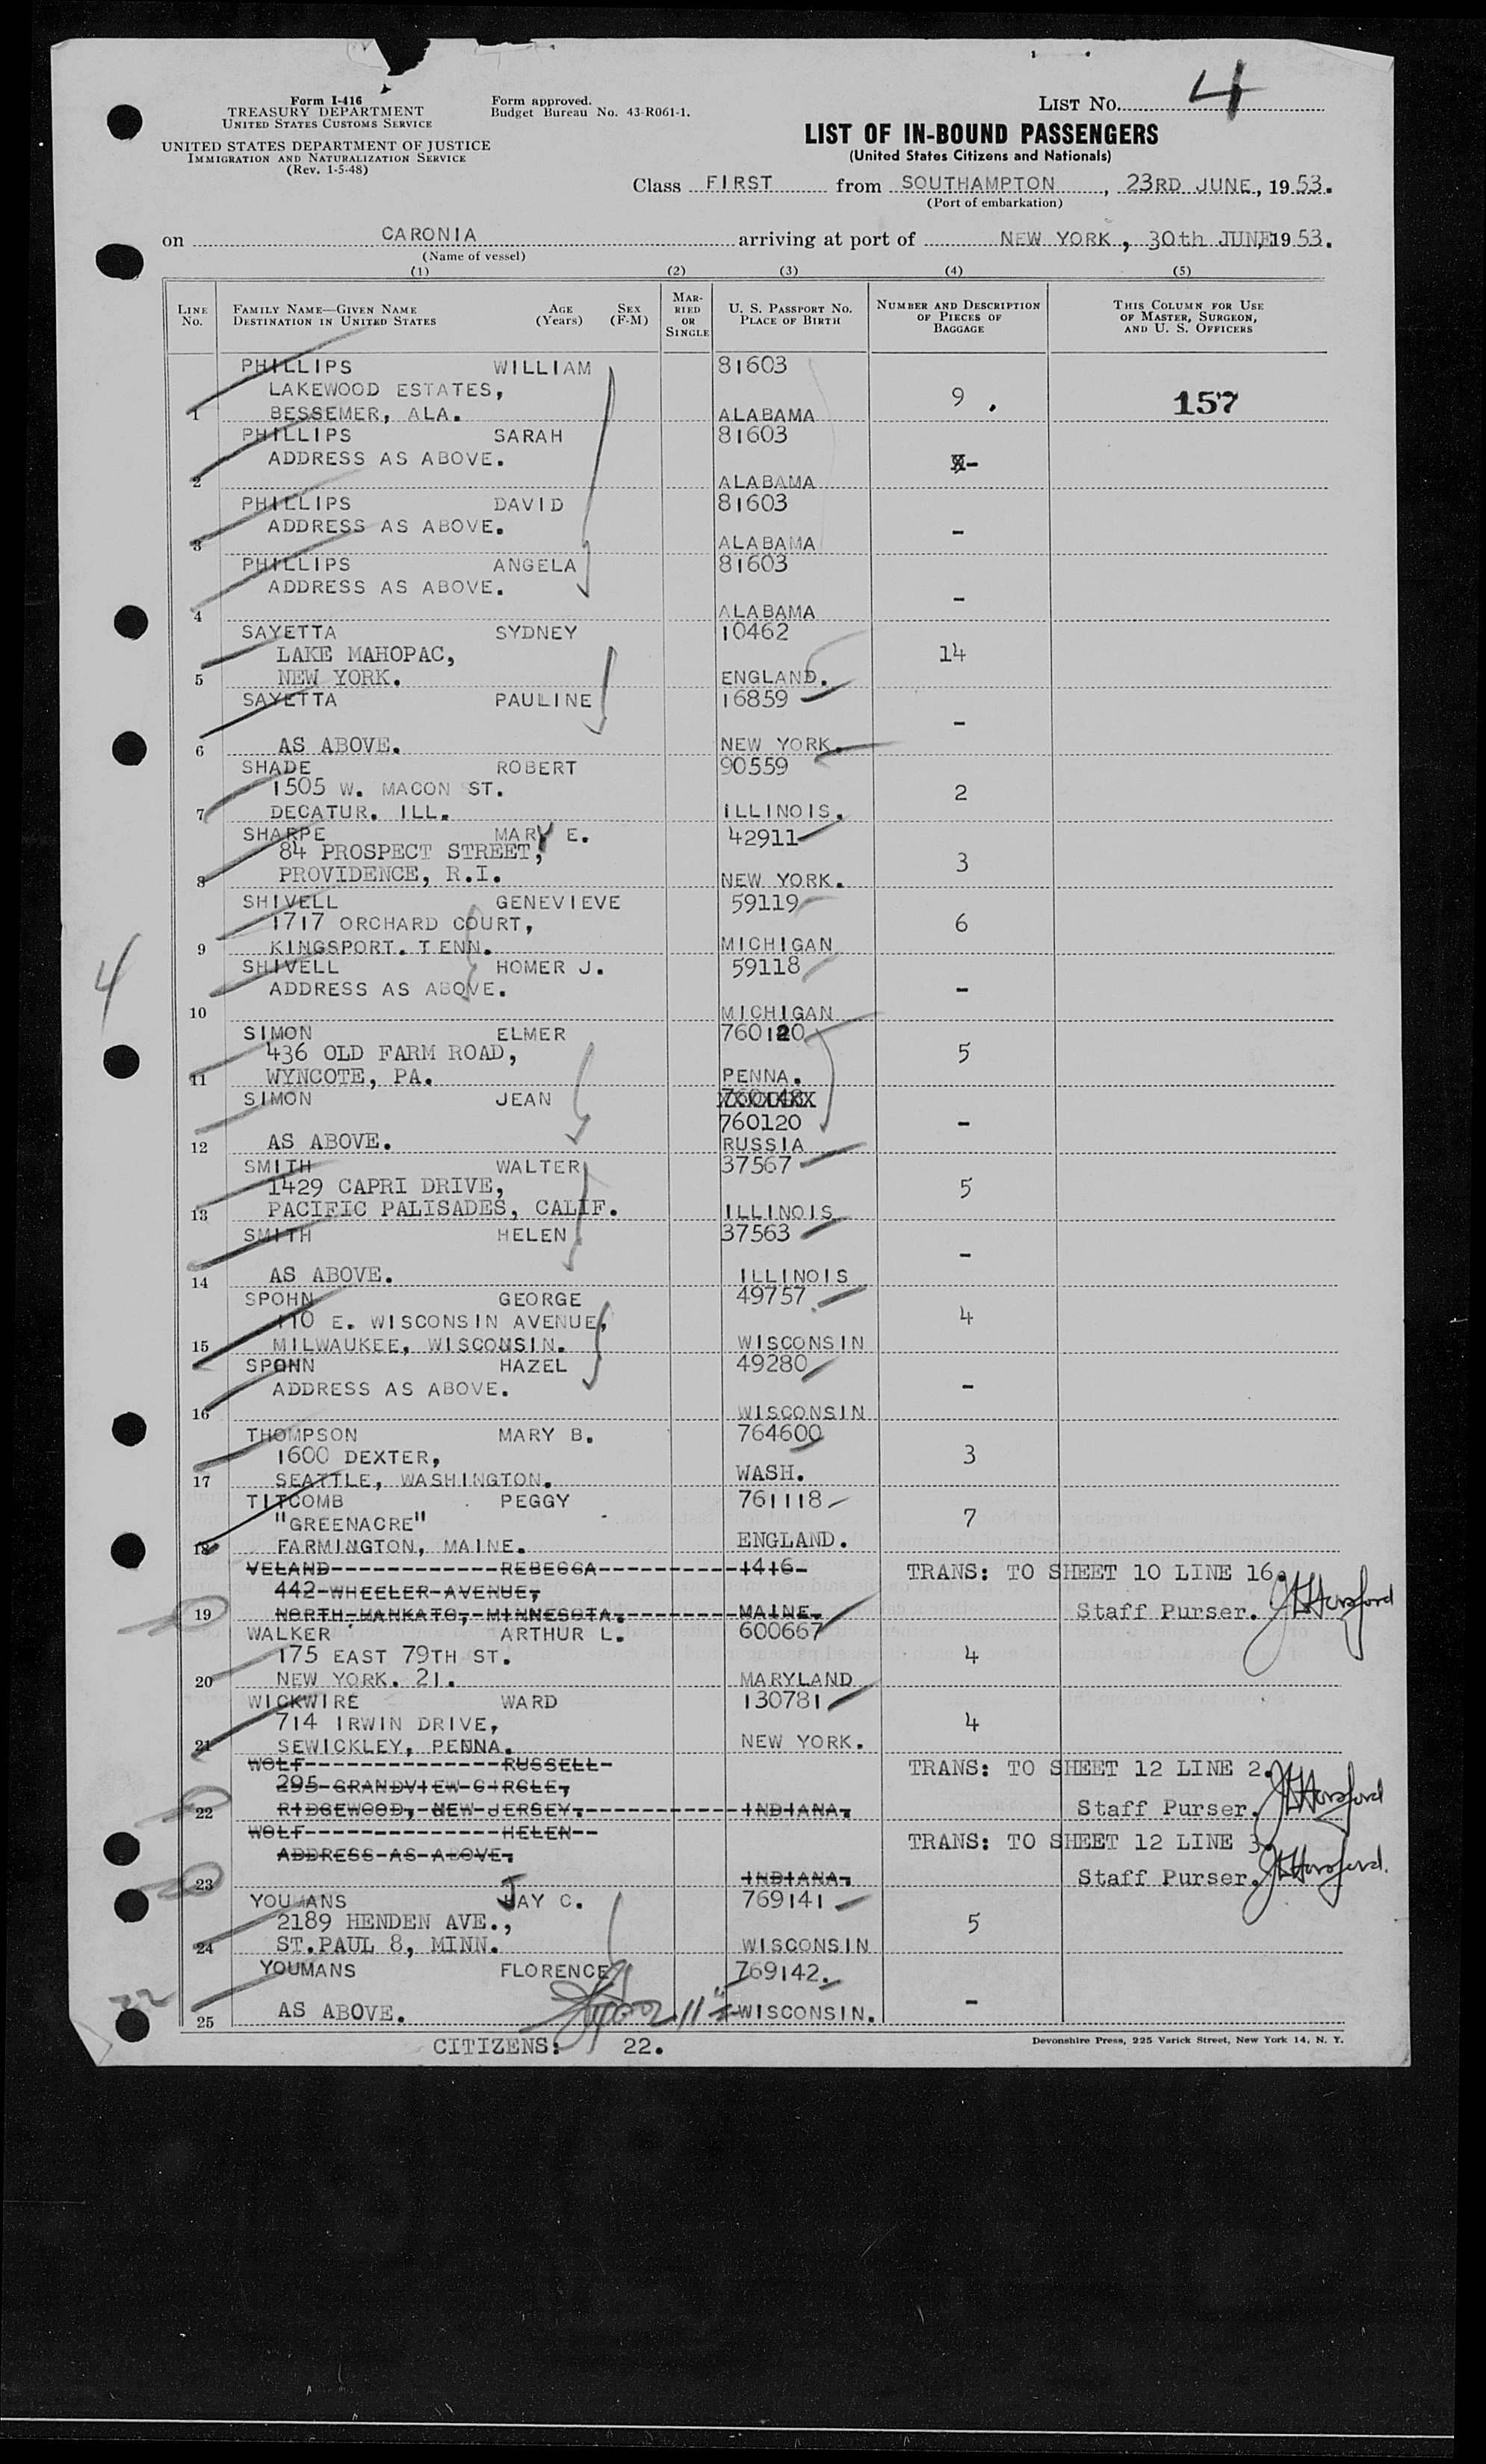 Form I-416
TREASURY DEPARTMENT
UNITED STATES CUSTOMS SERVICE
UNITED STATES DEPARTMENT OF JUSTICE
IMMIGRATION AND NATURALIZATION SERVICE
(Rev. 1-5-48)
Form approved.
Budget Bureau No. 43-R061-1.
LIST NO. 4
LIST OF IN-BOUND PASSENGERS
(United States Citizens and Nationals)
Class FIRST from SOUTHAMPTON, 23RD JUNE, 1953.
(Port of embarkation)
on CARONIA arriving at port of NEW YORK, 30th JUNE 1953.
(Name of vessel)
(1) (2) (3) (4) (5)
LINE NO. FAMILY NAME—GIVEN NAME DESTINATION IN UNITED STATES AGE (Years) SEX (F-M) MARRIED OR SINGLE U. S. PASSPORT NO. PLACE OF BIRTH NUMBER AND DESCRIPTION OF PIECES OF BAGGAGE THIS COLUMN FOR USE OF MASTER, SURGEON, AND U. S. OFFICERS
PHILLIPS WILLIAM 81603
LAKEWOOD ESTATES, 9. 157
1 BESSEMER, ALA. ALABAMA
PHILLIPS SARAH 81603
ADDRESS AS ABOVE. -
2 ALABAMA
PHILLIPS DAVID 81603
ADDRESS AS ABOVE. -
3 ALABAMA
PHILLIPS ANGELA 81603
ADDRESS AS ABOVE. -
4 ALABAMA
SAYETTA SYDNEY 10462
LAKE MAHOPAC, 14
5 NEW YORK. ENGLAND.
SAYETTA PAULINE 16859
-
6 AS ABOVE. NEW YORK.
SHADE ROBERT 90559
1505 W. MACON ST. 2
7 DECATUR. ILL. ILLINOIS.
SHARPE MARY E. 42911
84 PROSPECT STREET, 3
8 PROVIDENCE, R.I. NEW YORK.
SHIVELL GENEVIEVE 59119
1717 ORCHARD COURT, 6
9 KINGSPORT. TENN. MICHIGAN
SHIVELL HOMER J. 59118
ADDRESS AS ABOVE. -
10 MICHIGAN
4
SIMON ELMER 760120
436 OLD FARM ROAD, 5
11 WYNCOTE, PA. PENNA.
SIMON JEAN
760120 -
12 AS ABOVE. RUSSIA
SMITH WALTER 37567
1429 CAPRI DRIVE, 5
13 PACIFIC PALISADES, CALIF. ILLINOIS
SMITH HELEN 37563
-
14 AS ABOVE. ILLINOIS
SPOHN GEORGE 49757
110 E. WISCONSIN AVENUE, 4
15 MILWAUKEE, WISCONSIN. WISCONSIN
SPOHN HAZEL 49280
ADDRESS AS ABOVE. -
16 WISCONSIN
THOMPSON MARY B. 764600
1600 DEXTER, 3
17 SEATTLE, WASHINGTON. WASH.
TITCOMB PEGGY 761118
"GREENACRE" 7
18 FARMINGTON, MAINE. ENGLAND.
VELAND REBECCA 1416 TRANS: TO SHEET 10 LINE 16.
442 WHEELER AVENUE,
19 NORTH MANKATO, MINNESOTA. MAINE. Staff Purser. Horsford
WALKER ARTHUR L. 600667
175 EAST 79TH ST. 4
20 NEW YORK. 21. MARYLAND
WICKWIRE WARD 130781
714 IRWIN DRIVE, 4
21 SEWICKLEY, PENNA. NEW YORK.
WOLF RUSSELL TRANS: TO SHEET 12 LINE 2.
295 GRANDVIEW CIRCLE,
22 RIDGEWOOD, NEW JERSEY. INDIANA. Staff Purser. Horsford
WOLF HELEN TRANS: TO SHEET 12 LINE 3.
ADDRESS AS ABOVE.
23 INDIANA. Staff Purser. Horsford.
YOUMANS JAY C. 769141
2189 HENDEN AVE., 5
24 ST. PAUL 8, MINN. WISCONSIN
YOUMANS FLORENCE 769142.
22 -
25 AS ABOVE. WISCONSIN.
CITIZENS: 22.
Devonshire Press, 225 Varick Street, New York 14, N. Y.